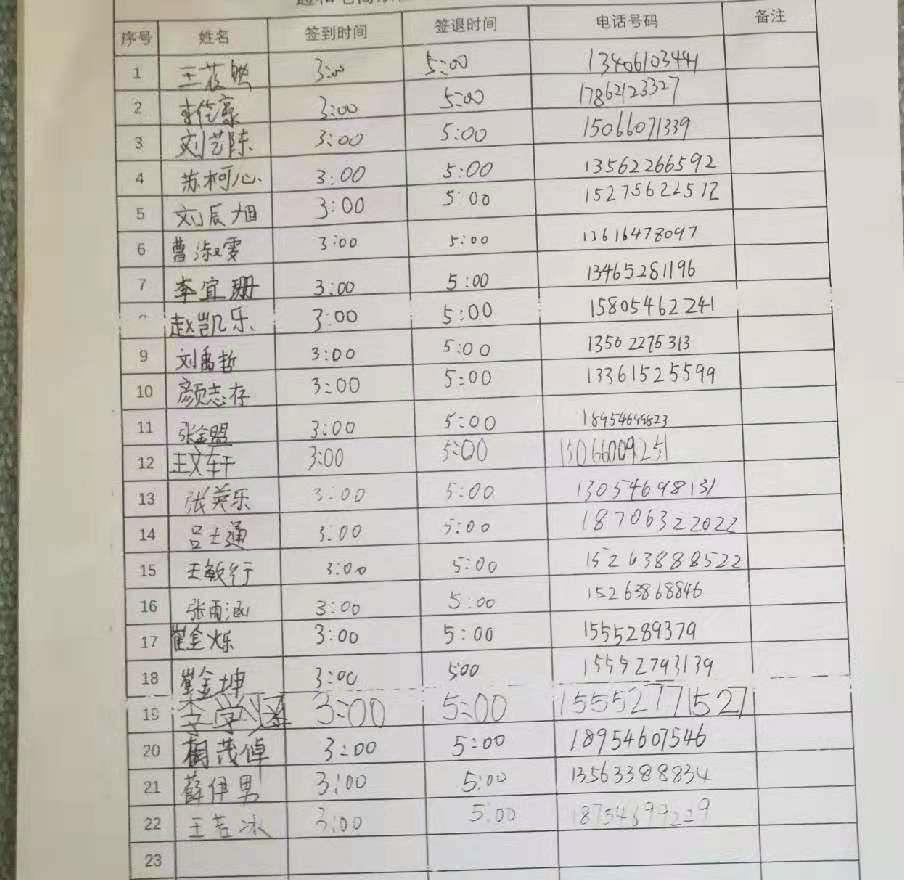 序号 姓名 签到时间 签退时间 电话号码 备注
1 王 3:00 5:00 13406103441
2 3:00 5:00 17862123327
3 刘艺陈 3:00 5:00 15066071339
4 苏柯心 3:00 5:00 13562266592
5 刘辰旭 3:00 5:00
6 曹淑雯 3:00 5:00 13616478097
7 李宜珊 3:00 5:00 13465281196
赵凯乐 3:00 5:00 15805462241
9 刘禹哲 3:00 5:00 13502275313
10 颜志存 3:00 5:00 13361525599
11 张金盟 3:00 5:00
12 王文轩 3:00 5:00 15066009251
13 张美乐 3:00 5:00 13054698131
14 吕士通 3:00 5:00 18706322022
15 王敏行 3:00 5:00 15263888522
16 张雨涵 3:00 5:00 15263868846
17 崔金烁 3:00 5:00 1555289379
18 崔金坤 3:00 5:00 15552793139
19 李学 3:00 5:00 15552771527
20 茂倬 3:00 5:00 18954607546
21 薛伊男 3:00 5:00 13563388834
22 王若冰 3:00 5:00 18754699229
23